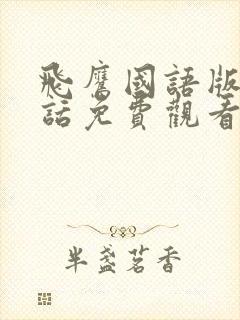 飛鷹國語版
話免費觀看
半盞茗香